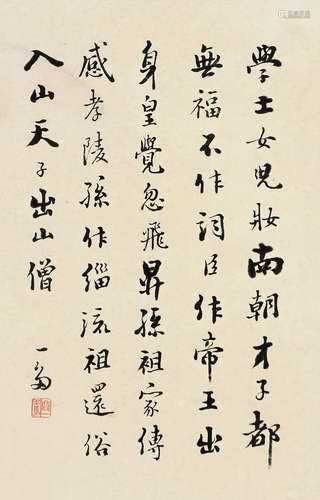 學士女兒妝南朝才子都
無福不作詞臣作帝王出
身皇覺忽飛昇孫祖家傳
感孝陵孫作緇流祖還俗
入山天子出山僧
一